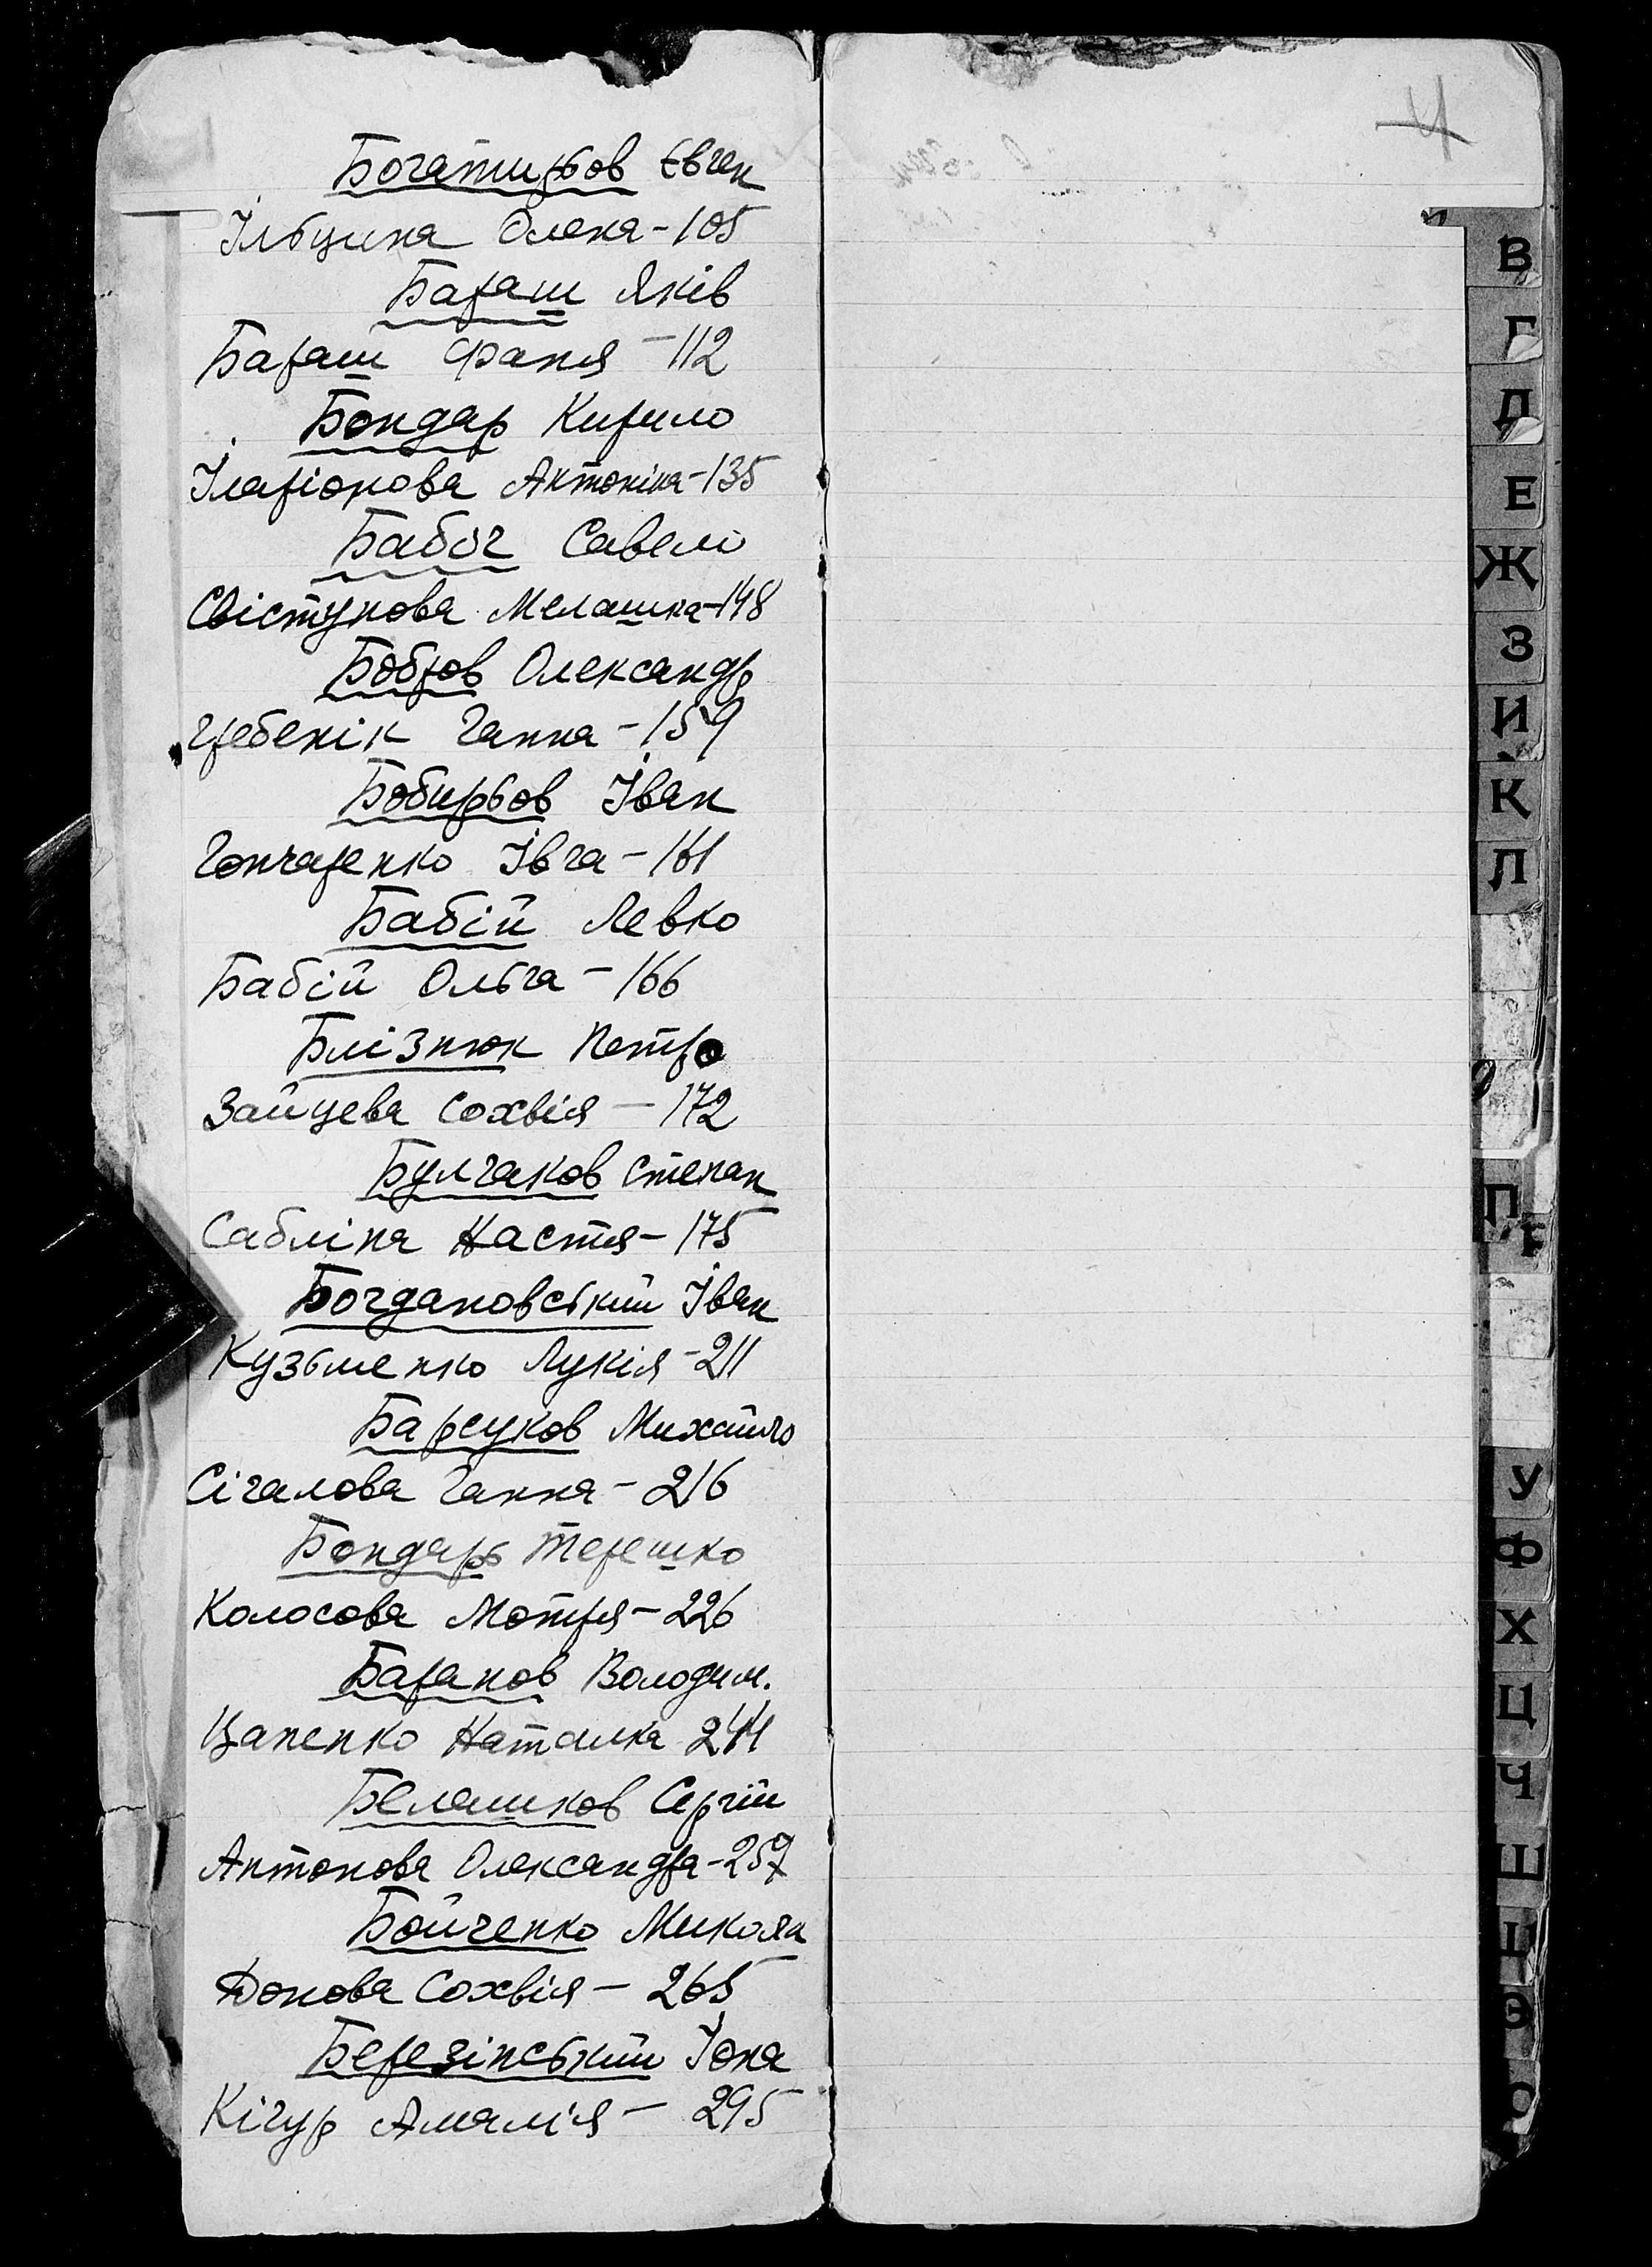 4
Богатирьов Євген
Ільїцина Олена - 105
Бараш Яків
Бараш Фаня - 112
Бондар Кирило
Іларіонова Антоніна - 135
Бабіч Савелій
Свістунова Мелашка - 148
Бобров Олександр
Гребенік Ганна - 159
Бобирьов Іван
Гончаренко Івга - 161
Бабій Левко
Бабій Ольга - 166
Блізнюк Петро
Зайцева Сохвія - 172
Булгаков Степан
Сабліна Настя - 175
Богдановський Іван
Кузьменко Лукія - 211
Барсуков Михайло
Сігалова Ганна - 216
Бондарь Терешко
Колосова Мотря - 226
Баранов Володим.
Цапенко Наталка 244
Белашков Сергій
Антонова Олександра - 257
Бойченко Микола
Донова Сохвія - 265
Березінський Іона
Кігур Амалія - 295
В
Г
Д
Е
Ж
З
И
К
Л
П
У
Ф
Х
Ц
Ч
Ш
Щ
Э